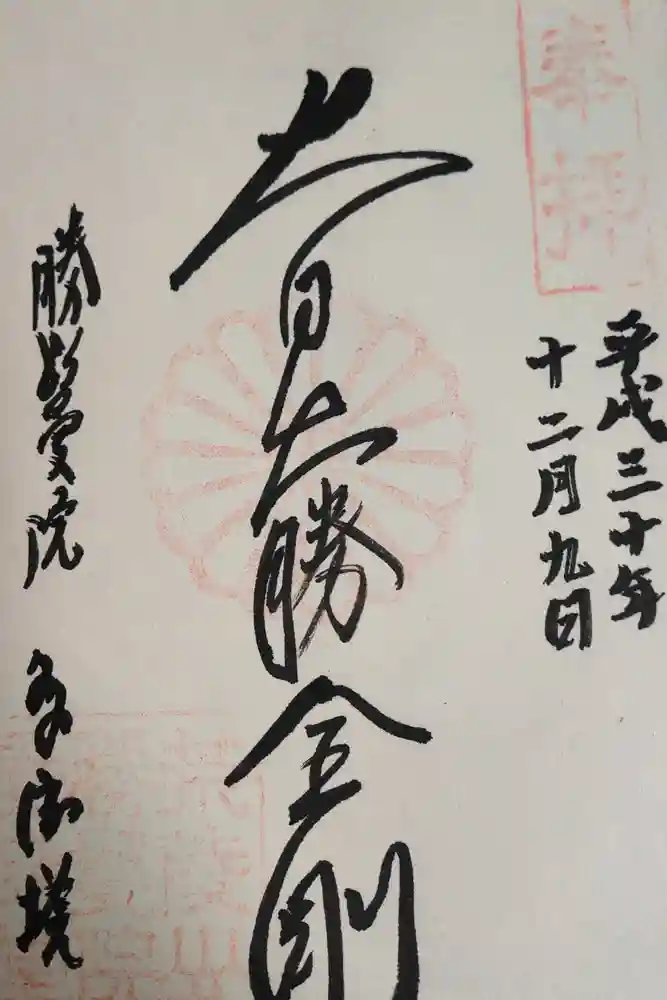 奉拝
平成三十年
十二月九日
大日大勝金剛
勝曼院 多宝塔